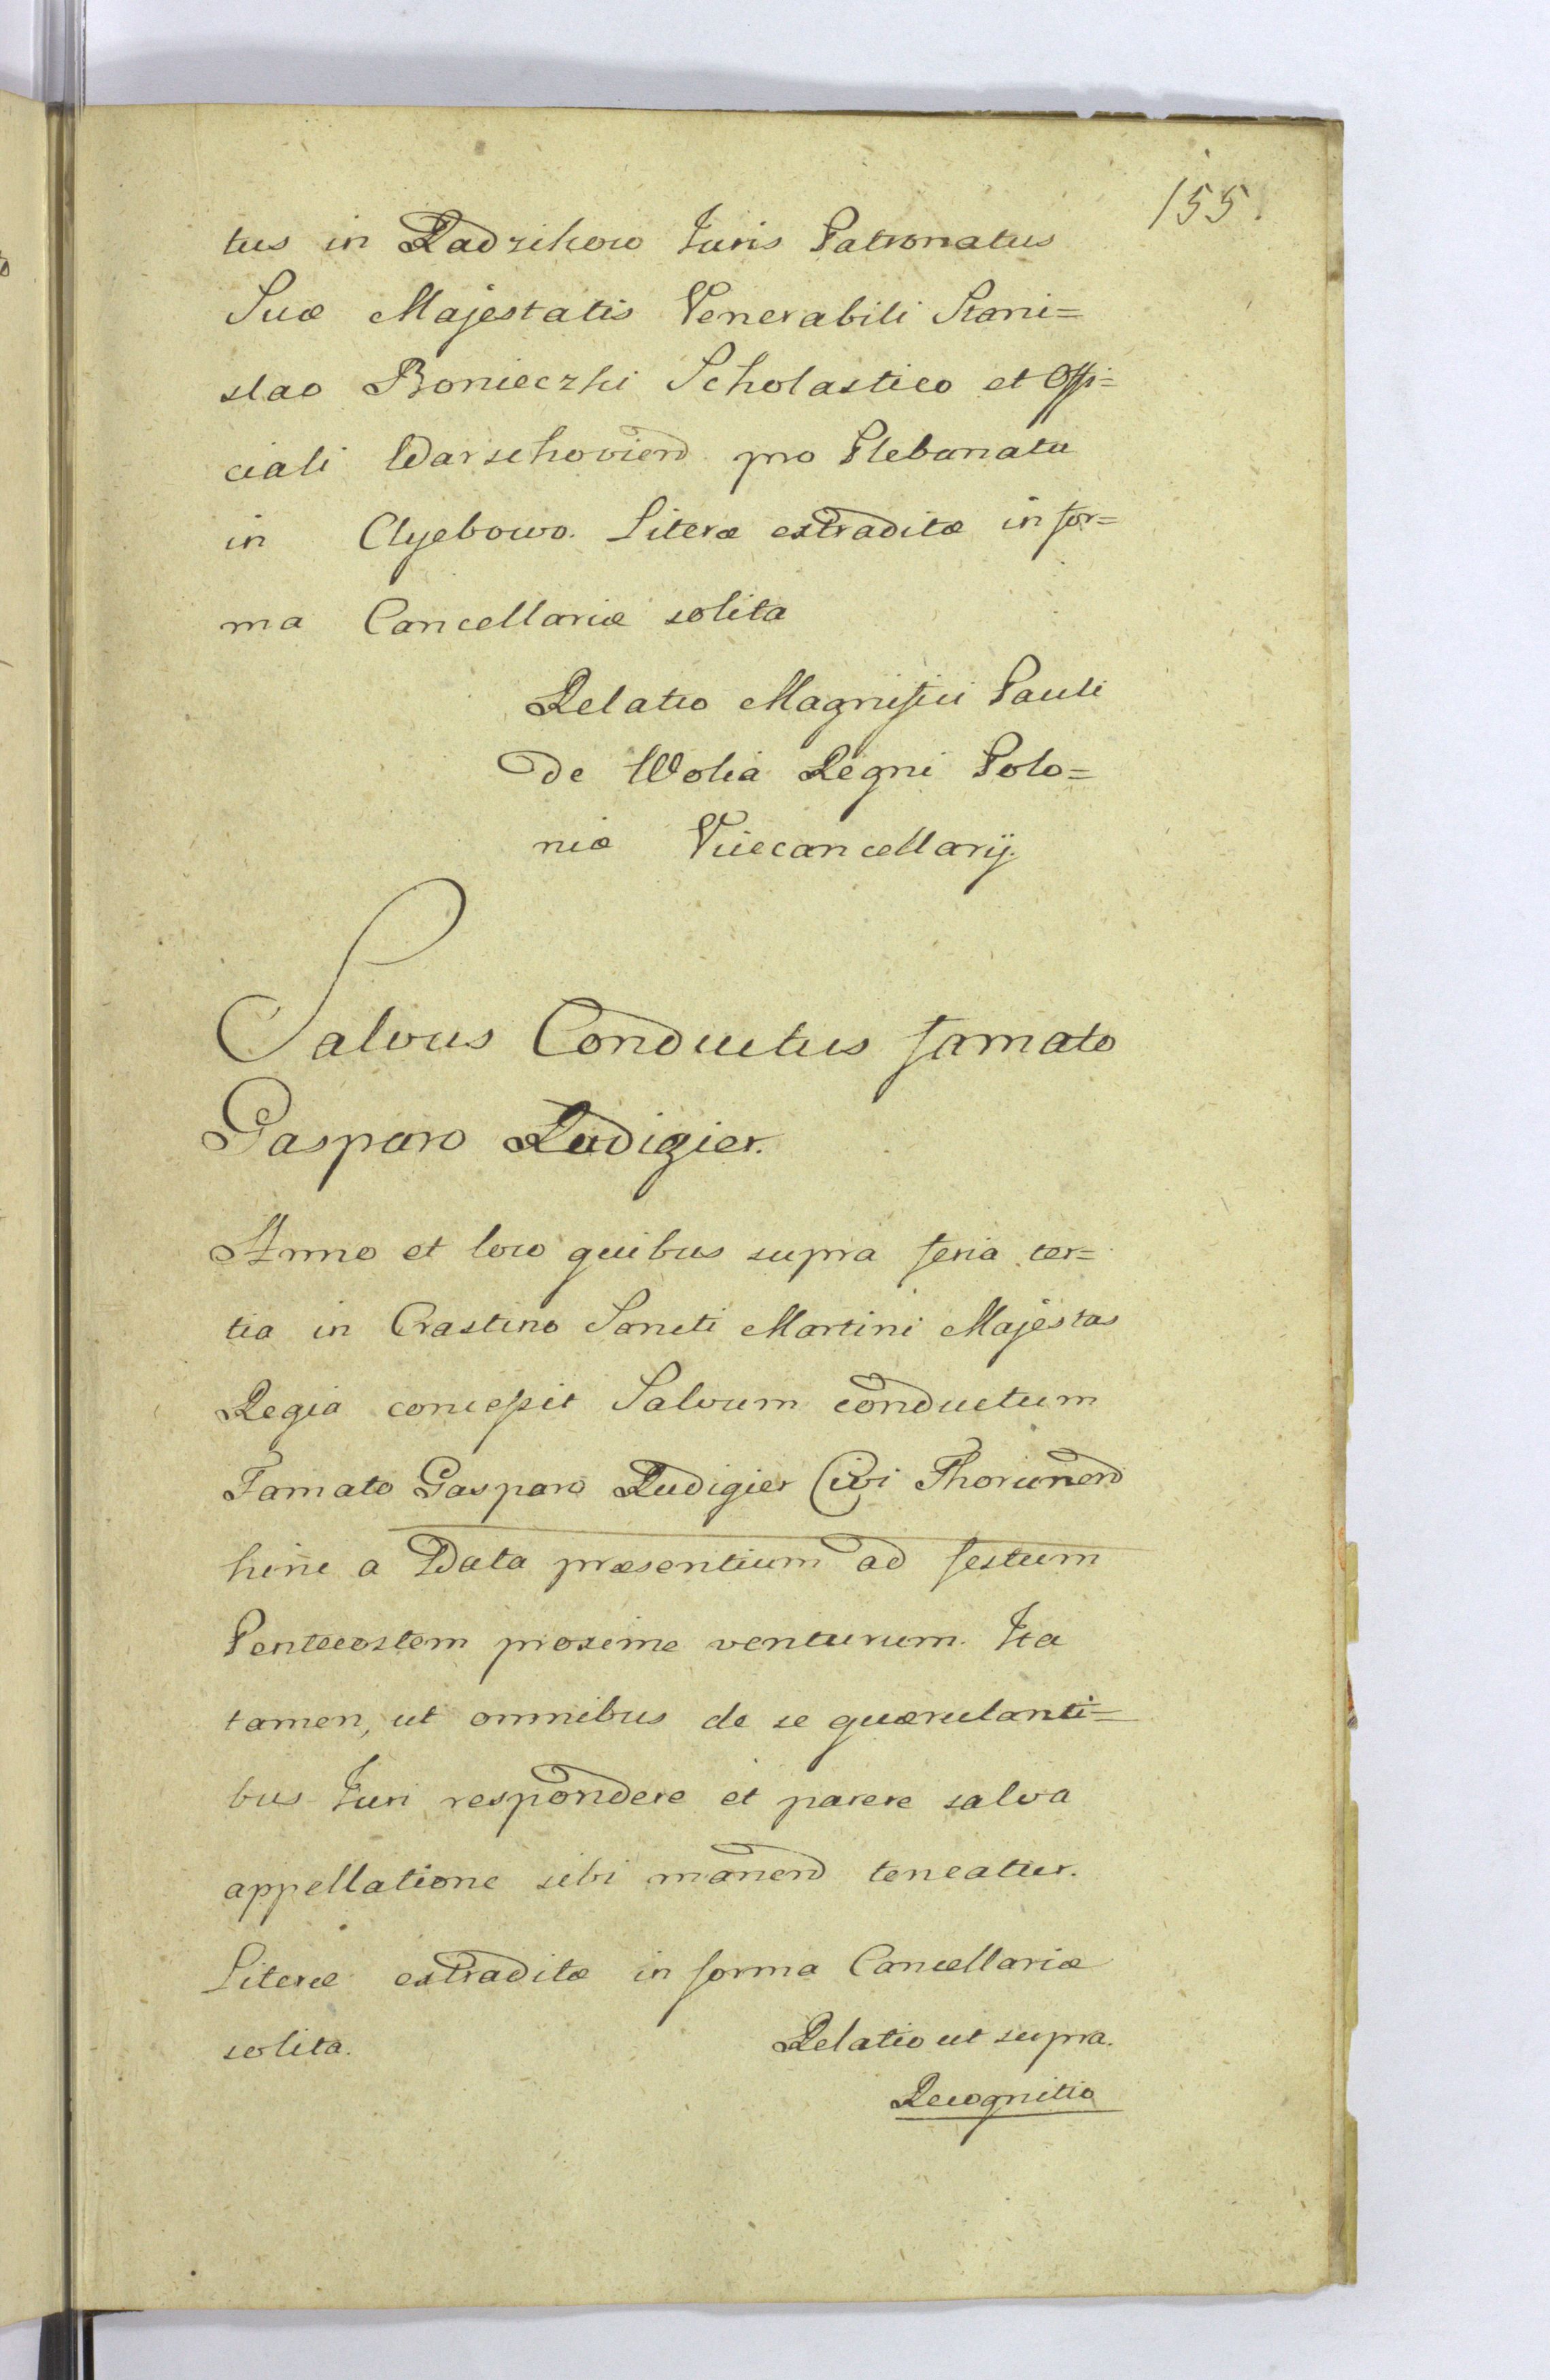 155.
tus in Radzikow Juris Patronatus
Suæ Majestatis Venerabili Stani=
slao Bonieczki Scholastico et Offi=
ciali Warschovien pro Plebanatu
in Clyebowo. Literæ extraditæ in for=
ma Cancellariæ solita
Relatio Magnifici Pauli
de Wolia Regni Polo=
niæ Vicecancellarij.
Salvus Conductus famato
Gasparo Rudigier.
Anno et loco quibus supra feria ter=
tia in Crastino Sancti Martini Majestas
Regia concessit Salvum conductum
Famato Gasparo Rudigier Civi Thorunen
hinc a Data præsentium ad festum
Pentecostem proxime venturum. Ita
tamen, ut omnibus de se quærulanti=
bus Juri respondere et parere salva
appellatione sibi manen teneatur.
Literæ extraditæ in forma Cancellariæ
solita. Relatio ut supra.
Recognitio